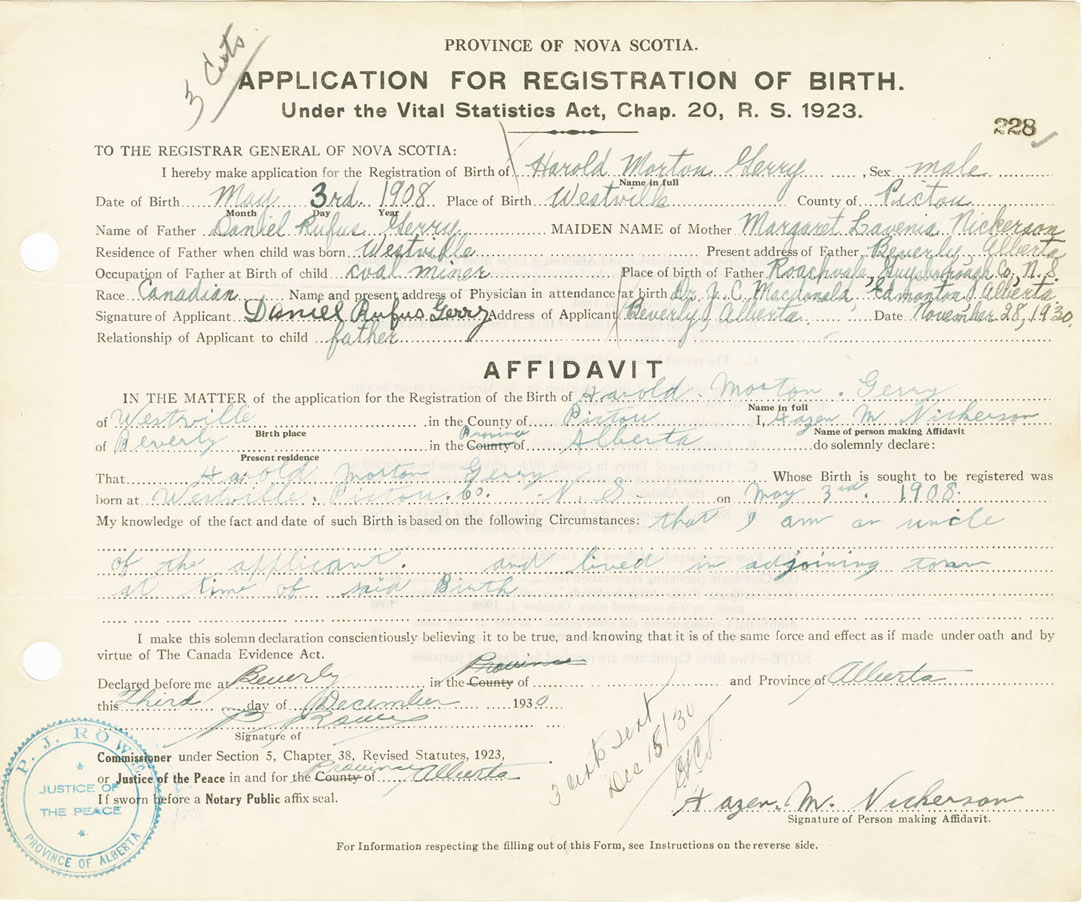 3 Certs
PROVINCE OF NOVA SCOTIA.
APPLICATION FOR REGISTRATION OF BIRTH.
Under the Vital Statistics Act, Chap. 20, R. S. 1923.
228
TO THE REGISTRAR GENERAL OF NOVA SCOTIA:
I hereby make application for the Registration of Birth of Harold Morton Gerry, Sex male
Name in full
Date of Birth May 3rd 1908 Place of Birth Westville County of Pictou
Month Day Year
Name of Father Daniel Rufus Gerry MAIDEN NAME of Mother Margaret Lavenia Nickerson
Residence of Father when child was born Westville Present address of Father Beverly, Alberta
Occupation of Father at Birth of child coal miner Place of birth of Father Roachvale, Guysborough Co, N.S.
Race Canadian Name and present address of Physician in attendance at birth Dr. J. C. Macdonald, Edmonton, Alberta
Signature of Applicant Daniel Rufus Gerry Address of Applicant Beverly, Alberta Date November 28, 1930
Relationship of Applicant to child father
AFFIDAVIT
IN THE MATTER of the application for the Registration of the Birth of Harold Morton Gerry
Name in full
of Westville in the County of Pictou I, Hazen M. Nickerson
Birth place Name of person making Affidavit
of Beverly in the County Province of Alberta do solemnly declare:
Present residence
That Harold Morton Gerry Whose Birth is sought to be registered was
born at Westville. Pictou. Co. N. S on May 3rd. 1908.
My knowledge of the fact and date of such Birth is based on the following Circumstances: that I am an uncle
of the applicant. and lived in adjoining town
at time of said Birth
I make this solemn declaration conscientiously believing it to be true, and knowing that it is of the same force and effect as if made under oath and by
virtue of The Canada Evidence Act.
Declared before me at Beverly in the County Province of and Province of Alberta
this Third day of December 1930
P J Rowe
Signature of
Commissioner under Section 5, Chapter 38, Revised Statutes, 1923,
or Justice of the Peace in and for the County Province of Alberta
If sworn before a Notary Public affix seal.
P. J. ROWE
JUSTICE OF
THE PEACE
PROVINCE OF ALBERTA
3 certs sent
Dec 15/30
Hazen. M. Nickerson
Signature of Person making Affidavit.
For Information respecting the filling out of this Form, see Instructions on the reverse side.